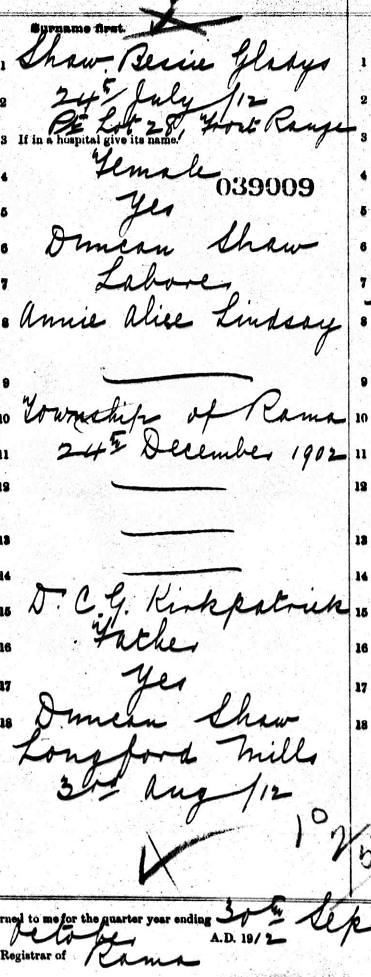 Surname first.
1 Shaw, Bessie Gladys 1
2 24th July /12 2
Pt Lot 28, Front Range
3 If in a hospital give its name. 3
4 Female 4
039009
5 Yes 5
6 Duncan Shaw 6
7 Laborer 7
8 Annie Alice Lindsay 8
9 9
10 Township of Rama 10
11 24th December 1902 11
12 12
13 13
14 14
15 Dr. C. G. Kirkpatrick 15
16 Father 16
17 Yes 17
18 Duncan Shaw 18
Longford Mills
3rd Aug /12
rned to me for the quarter year ending 30th Sep
October A.D. 1912
Registrar of Rama